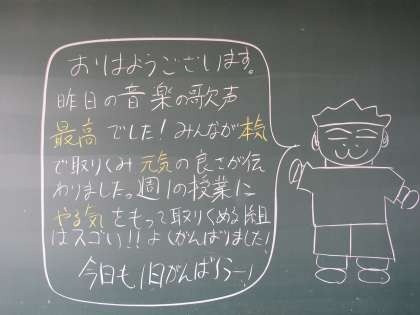 おはようございます。
昨日の音楽の歌声
最高でした！みんなが本気
で取りくみ元気の良さが伝
わりましたっ週1の授業に
やる気をもって取りくめる組
はスゴい!!よくがんばりました！
今日も1日がんばろうー！